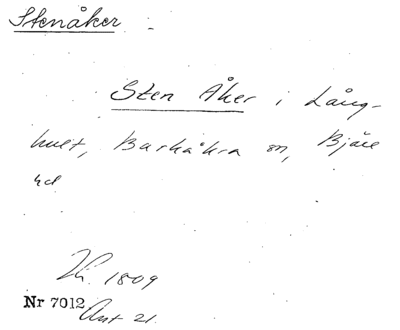 Stenåker
Sten Åker i Lång-
hult, Barkåkra sn, Bjäre
hd
Hi. 1809
Nr 7012
Ant 21.